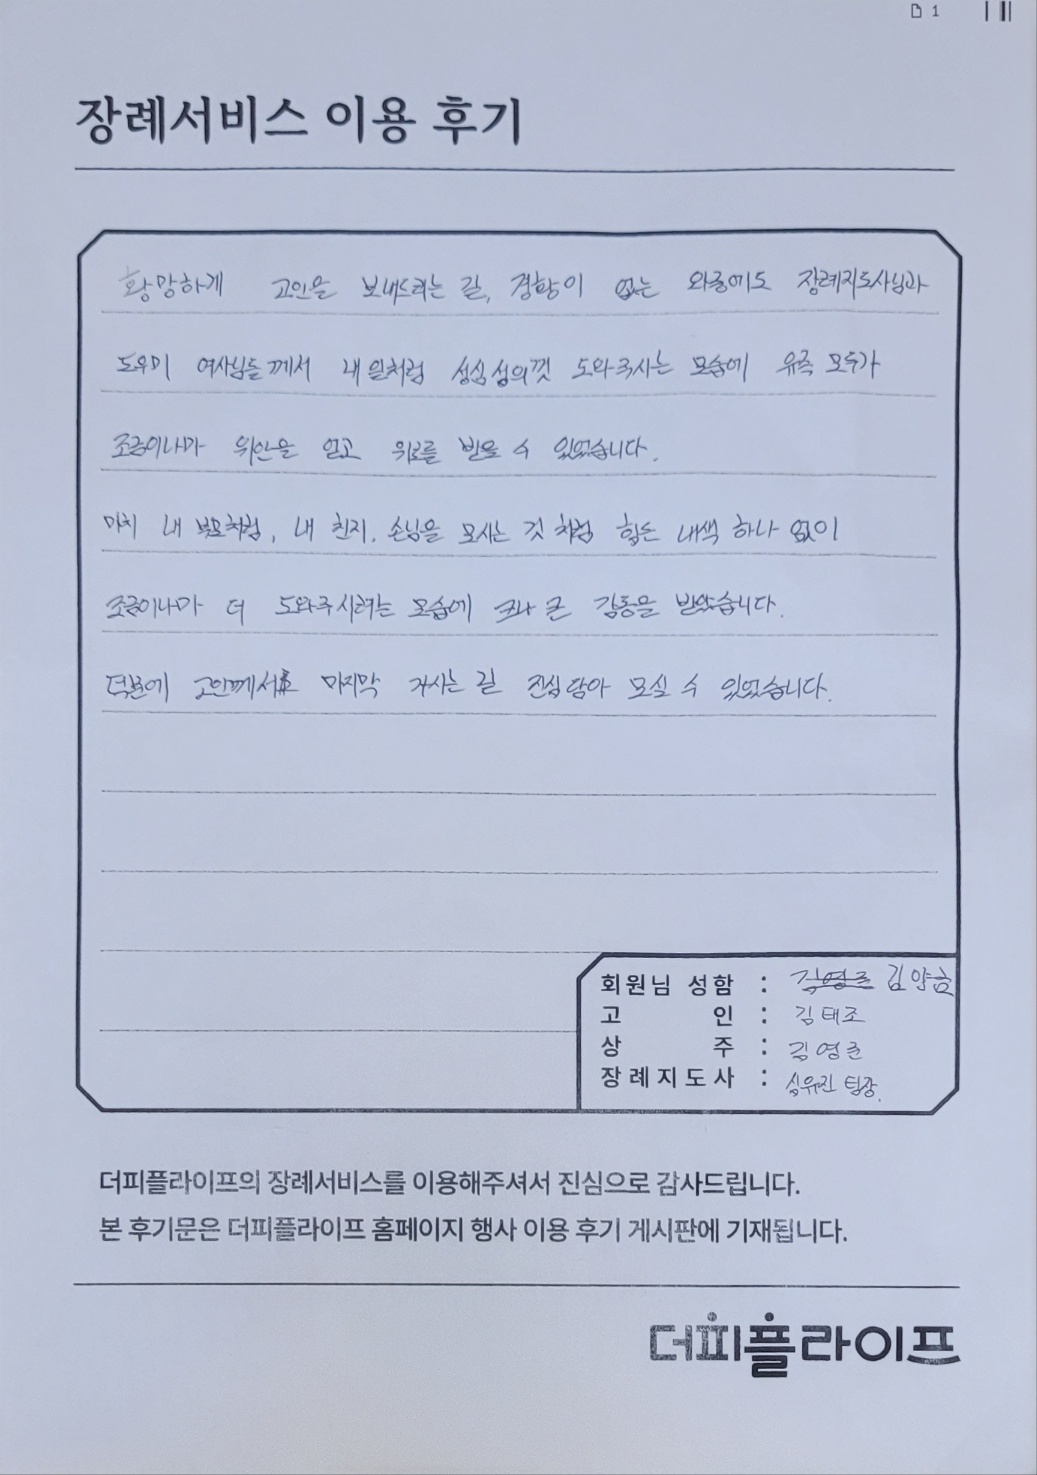 1
장례서비스 이용 후기
황망하게 고인을 보내드리는 길, 경황이 없는 와중에도 장례지도사님과
도우미 여사님들께서 내 일처럼 성심성의껏 도와주시는 모습에 유족 모두가
조금이나마 위안을 얻고 위로를 받을 수 있었습니다.
마치 내 부모처럼, 내 친지, 손님을 모시는 것 처럼 힘든 내색 하나 없이
조금이나마 더 도와주시려는 모습에 크나 큰 감동을 받았습니다.
덕분에 고인께서 마지막 가시는 길 진심 담아 모실 수 있었습니다.
회원님 성함 : 김영준 김양금
고 인 : 김태조
상 주 : 김영준
장례지도사 : 심유진 팀장.
더피플라이프의 장례서비스를 이용해주셔서 진심으로 감사드립니다.
본 후기문은 더피플라이프 홈페이지 행사 이용 후기 게시판에 기재됩니다.
더피플라이프